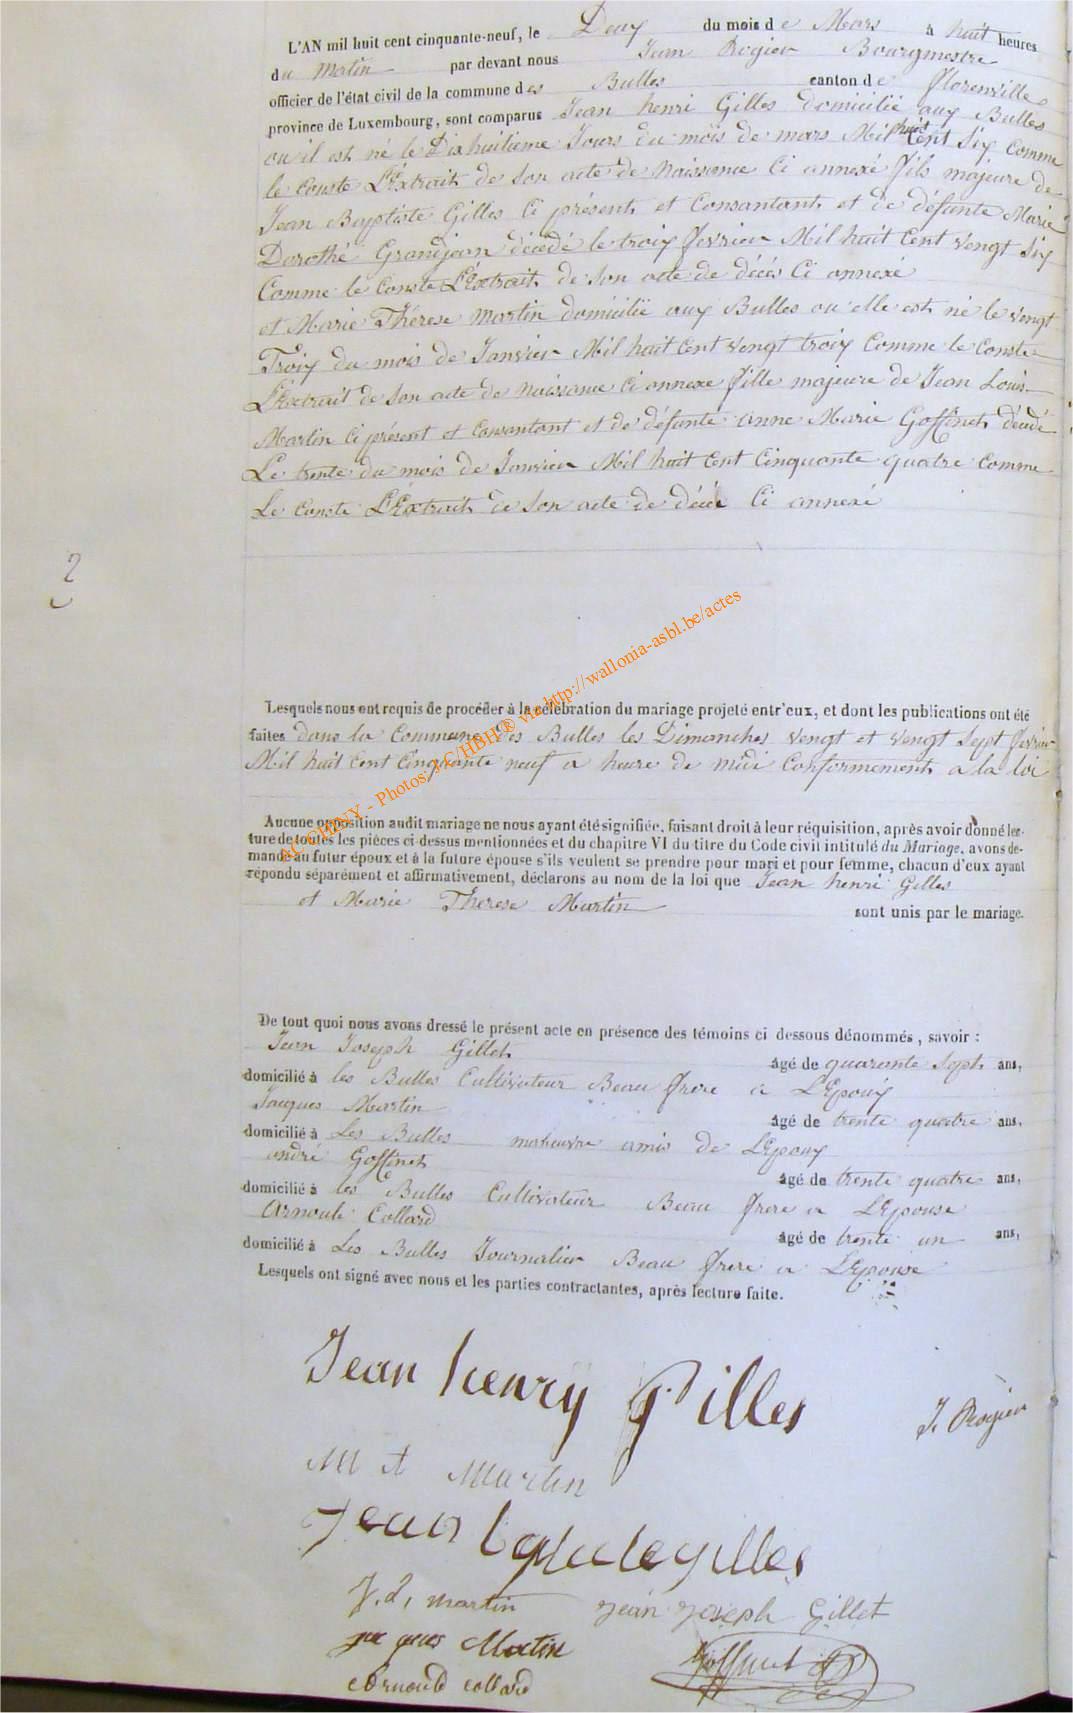 L'AN mil huit cent cinquante-neuf, le Deux du mois de Mars à huit heures
du Matin par devant nous Jean Rogier Bourgmestre
officier de l'état civil de la commune des Bulles canton de Florenville
province de Luxembourg, sont comparus Jean henri Gilles domicilié aux Bulles
ou il est né le Dixhuitieme Jours du mois de mars Mil huit Cent Six Comme
le Conste L'Extrait de Son acte de Naissance Ci annexé fils majeure de
Jean Baptiste Gilles Ci présent et Consantant et de défunte Marie
Dorothé Grandjean décédé le troix fevrier Mil huit Cent vengt Six
Comme le Conste L'Extrait de Son acte de décés Ci annexé
et Marie Thérese Martin domicilië aux Bulles ou elle est né le vengt
Troix du mois de Janvier Mil huit Cent vengt troix Comme le Conste
L'Extrait de Son acte de Naissance Ci annexe fille majeure de Jean Louis
Martin Ci présent et Consantant et de défunte anne Marie Goffinet décédé
Le trente du mois de Janvier Mil huit Cent Cinquante quatre Comme
Le Conste L'Extrait de Son acte de décé Ci annexé
2
Lesquels nous ont requis de procéder à la célébration du mariage projeté entr'eux, et dont les publications ont été
faites dans la Commune des Bulles les Dimanches vengt et vengt Sept fevrier
Mil huit Cent Cinquante neuf a heure de midi Conformement a la loi
Aucune opposition audit mariage ne nous ayant été signifiée, faisant droit à leur réquisition, après avoir donné lec-
ture de toutes les pièces ci-dessus mentionnées et du chapitre VI du titre du Code civil intitulé du Mariage, avons de-
mandé au futur époux et à la future épouse s'ils veulent se prendre pour mari et pour femme, chacun d'eux ayant
répondu séparément et affirmativement, déclarons au nom de la loi que Jean henri Gilles
et Marie Therese Martin sont unis par le mariage.
De tout quoi nous avons dressé le présent acte en présence des témoins ci dessous dénommés, savoir :
Jean Joseph Gillet âgé de quarante Sept ans,
domicilié à les Bulles Cultivateur Beau frere a L'Epoux
Jacques Martin âgé de trente quatre ans,
domicilié à Les Bulles amis de L'Epoux
andré Goffinet âgé de trente quatre ans,
domicilié à les Bulles Cultivateur Beau frere a L'Epouse
Arnould Collard âgé de trente un ans,
domicilié à Les Bulles Journalier Beau frere a L'Epouse
Lesquels ont signé avec nous et les parties contractantes, après lecture faite.
Jean henry Gilles
J. Rogier
M t Martin
Jean Gilles
J. L. martin Jean Joseph Gillet
jacques Martin Goffinet
Arnould collard
AC CHINY - Photos: J.C/HBH® via http://wallonia-asbl.be/actes